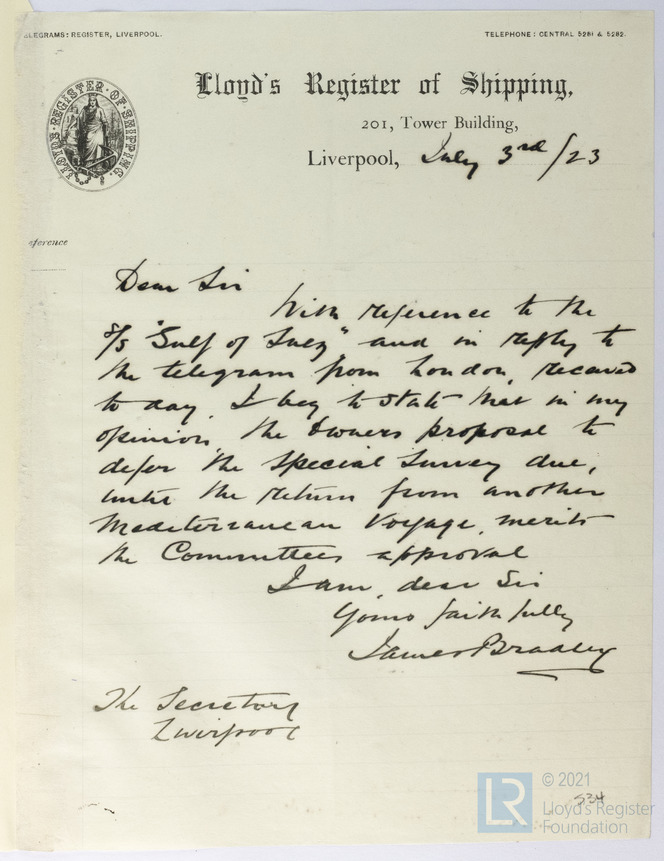 ELEGRAMS: REGISTER, LIVERPOOL.
TELEPHONE: CENTRAL 5281 & 5282.
LLOYD'S REGISTER OF SHIPPING.
Lloyd's Register of Shipping,
201, Tower Building,
Liverpool, July 3rd/23
eference
Dear Sir
With reference to the
S/S "Gulf of Suez" and in reply to
the telegram from London, received
to day, I beg to state that in my
opinion, the Owners proposal to
defer the Special Survey due,
until the return from another
Mediterranean Voyage, merits
the Committees approval
I am, dear Sir
Yours faithfully
James Bradley
The Secretary
Liverpool
534
LR
© 2021
Lloyd's Register
Foundation